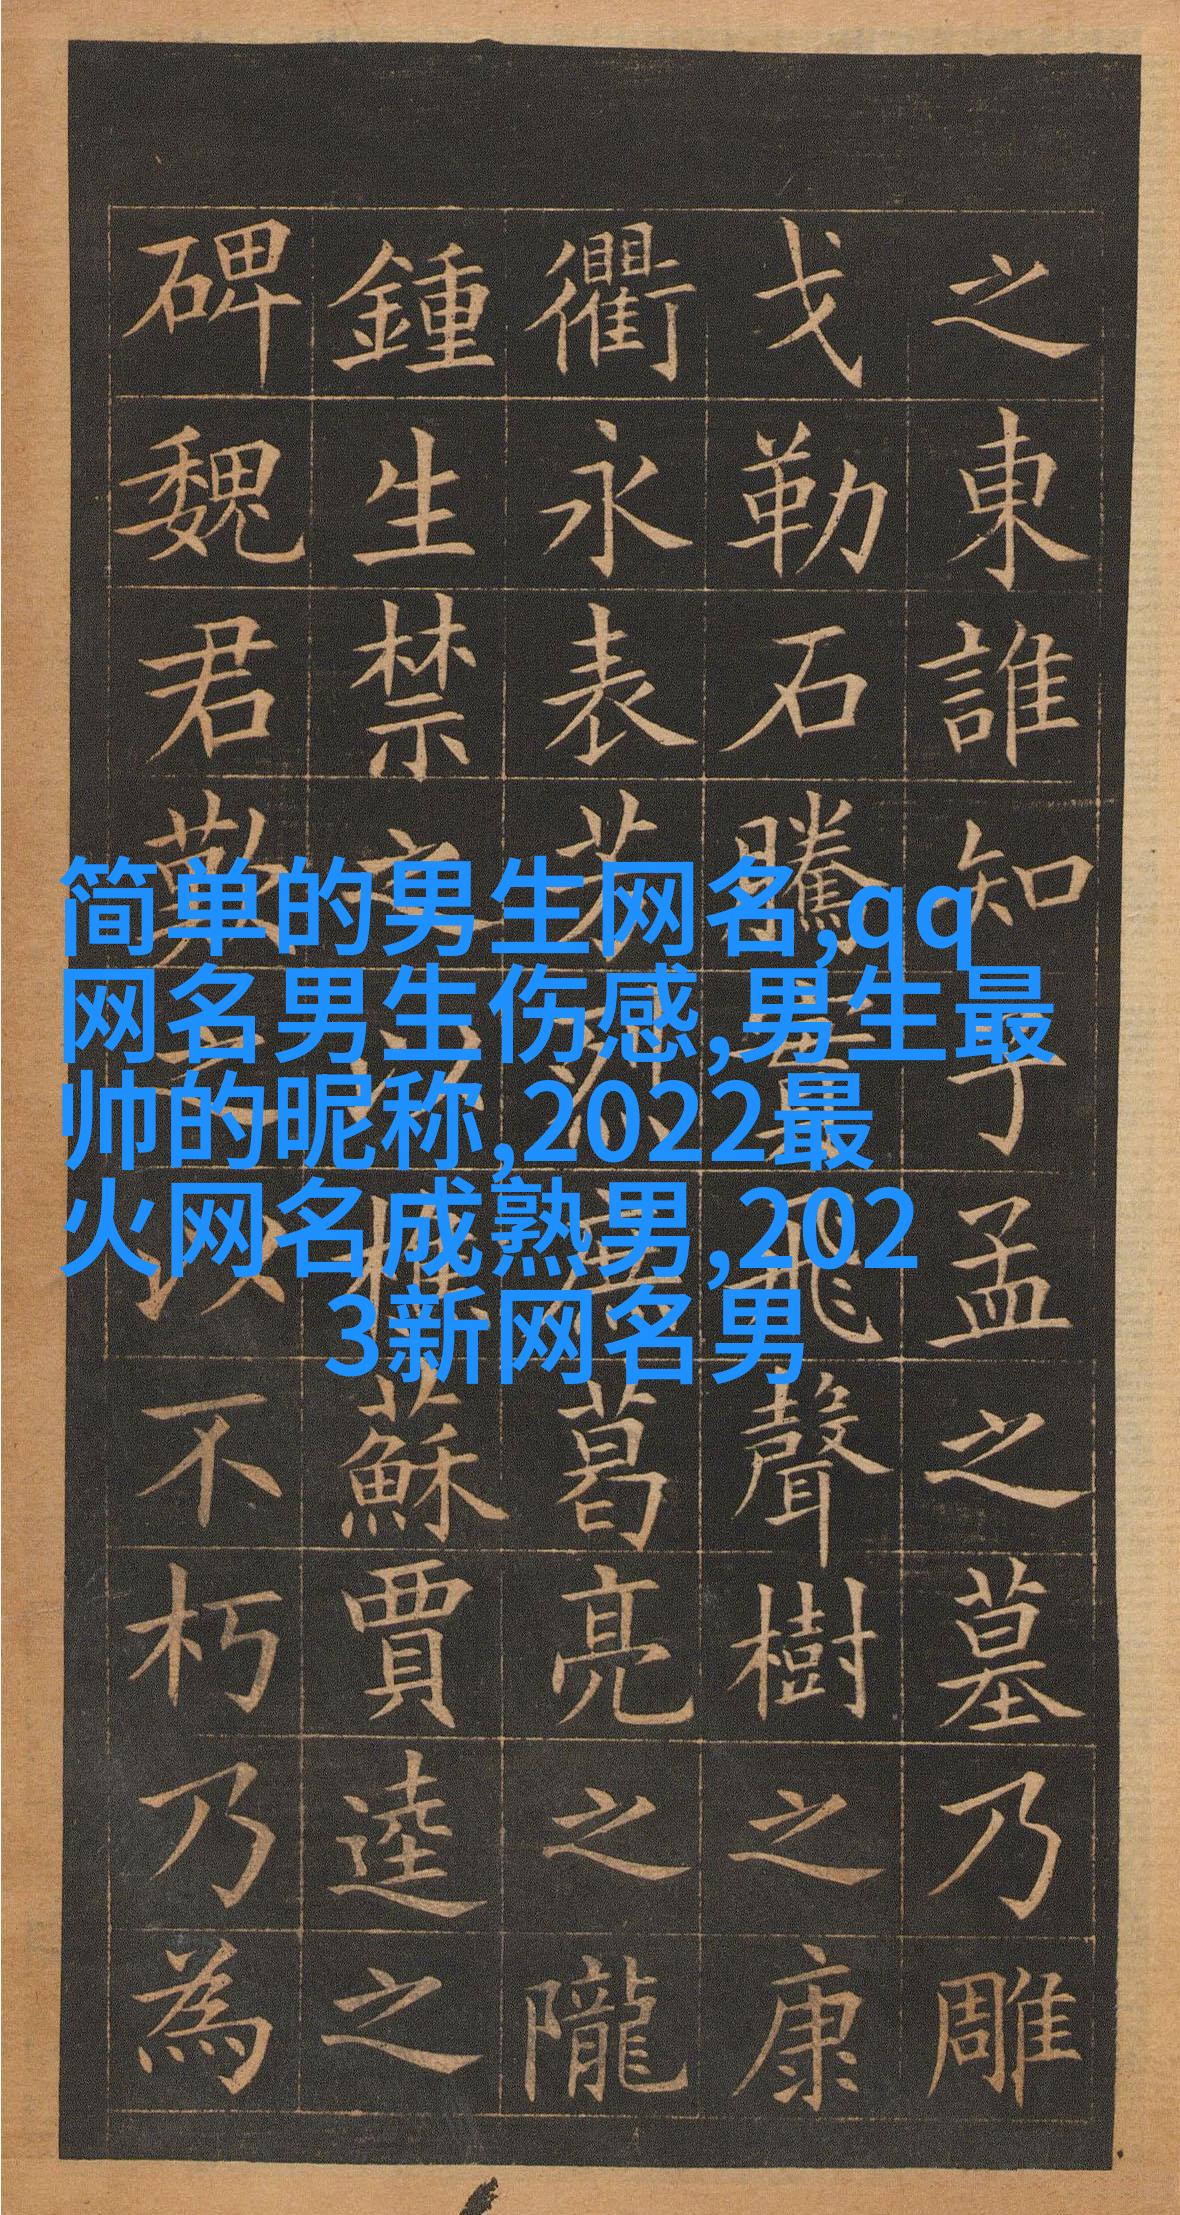 简单的男生网名,qq
网名男生伤感,男生最
帅的昵称,2022最
火网名成熟男,202
3新网名男
之東誰知子孟之墓乃雕
戈勒石騰飛聲樹之康
衢永表芳烈葛亮之隴
鍾生禁之以樵蘇賈逵之
碑魏君之以不朽乃為